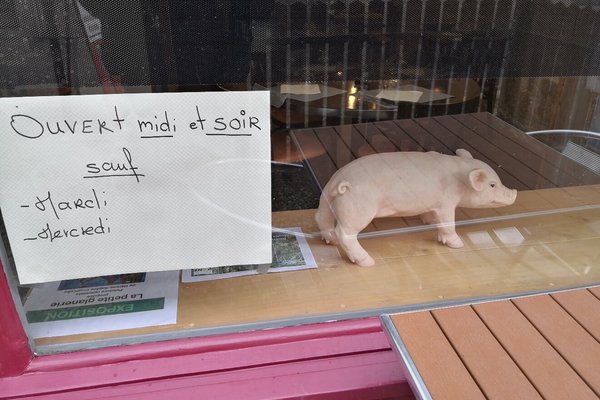 Ouvert midi et soir
sauf
- Mardi
- Mercredi
La petite glanerie
EXPOSITION